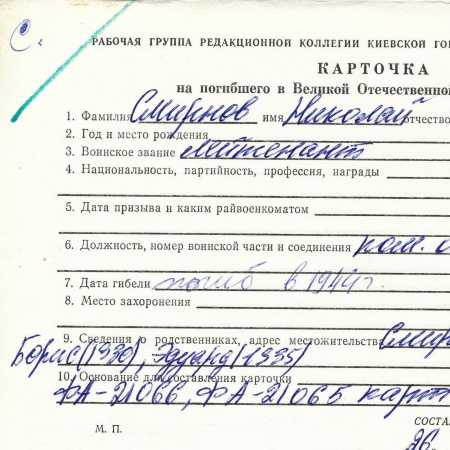 С.
РАБОЧАЯ ГРУППА РЕДАКЦИОННОЙ КОЛЛЕГИИ КИЕВСКОЙ ГОР
КАРТОЧКА
на погибшего в Великой Отечественно
1. Фамилия Смирнов имя Николай отчество
2. Год и место рождения
3. Воинское звание лейтенант
4. Национальность, партийность, профессия, награды
5. Дата призыва и каким райвоенкоматом
6. Должность, номер воинской части и соединения ком. о
7. Дата гибели погиб в 1944 г.
8. Место захоронения
9. Сведения о родственниках, адрес местожительства Смир
Борис (1930), Эдуард (1935)
10. Основание для составления карточки
ФА-21066, ФА-21065 карт
М. П.
СОСТА
26.